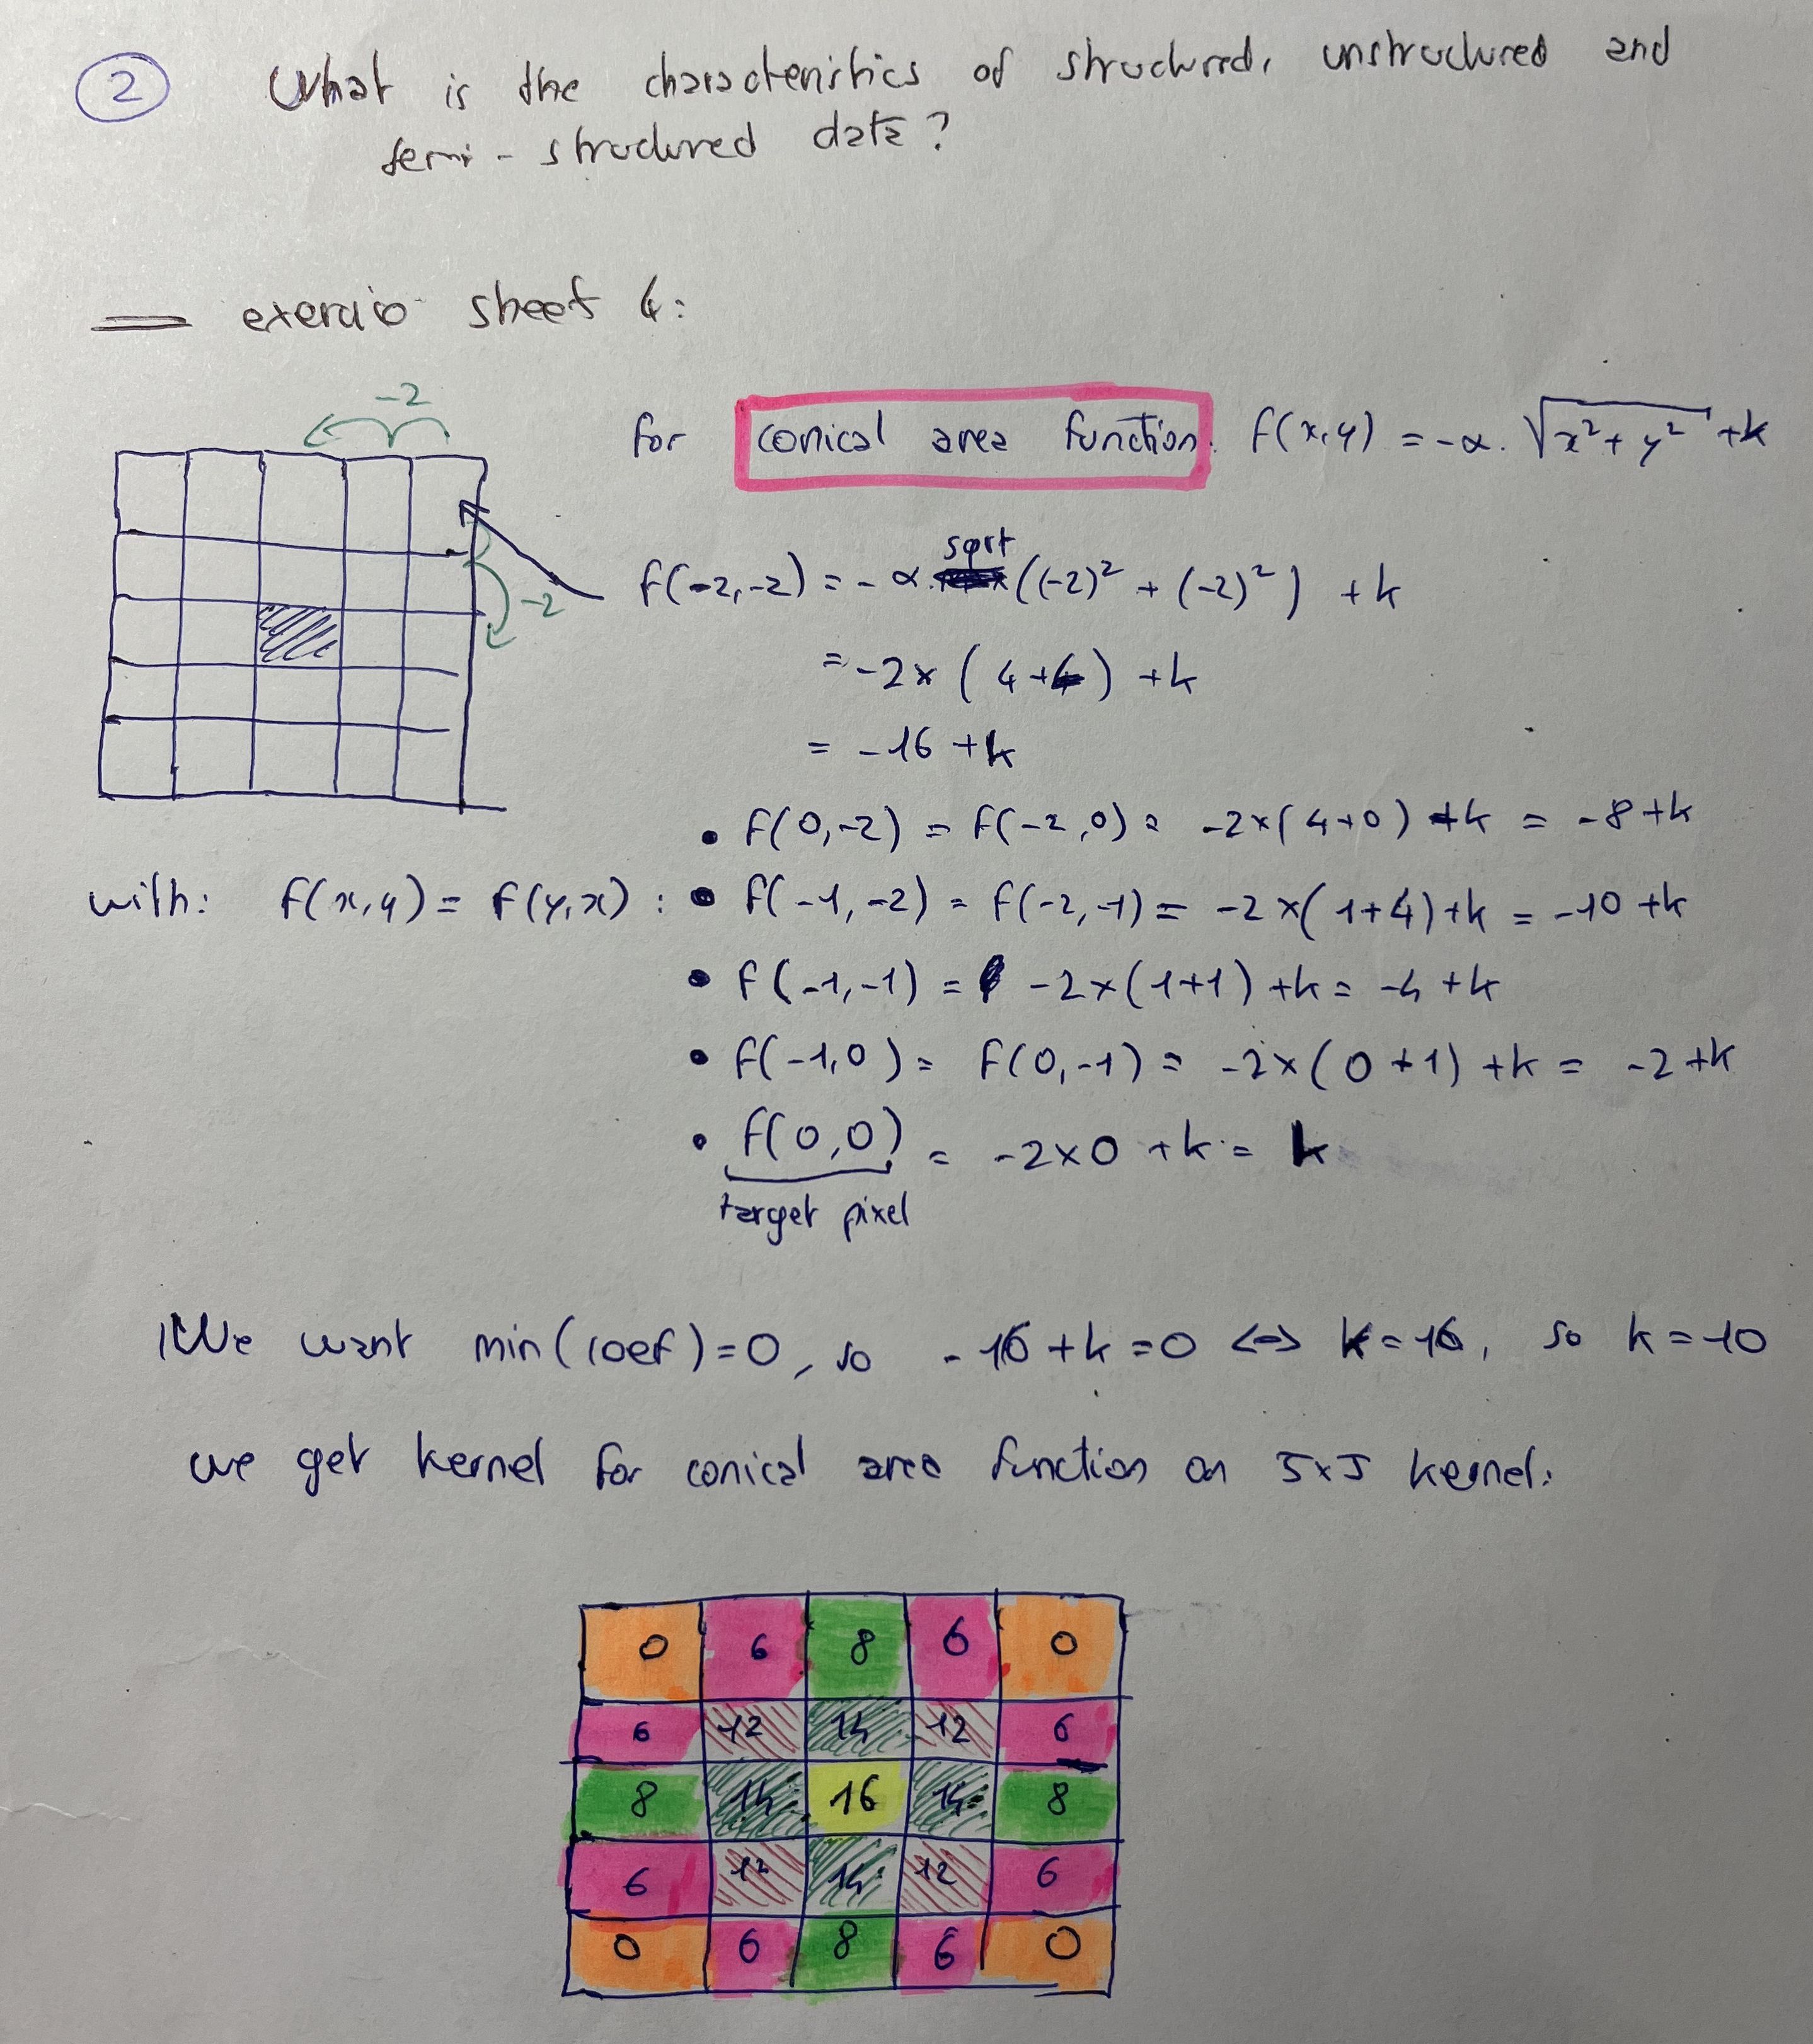 2 What is the characteristics of structured, unstructured and
semi-structured data?
exercio sheet 4:
-2
for conical area function: f(x,y) = -α.√x²+y² +k
sqrt
f(-2,-2) = -α.((-2)² + (-2)²) +k
-2
= -2x (4+4) +k
= -16 +k
• f(0,-2) = f(-2,0) = -2x(4+0) +k = -8+k
with: f(x,y) = f(y,x) : • f(-1,-2) = f(-2,-1) = -2x(1+4)+k = -10+k
• f(-1,-1) = -2x(1+1)+k = -4+k
• f(-1,0) = f(0,-1) = -2x(0+1)+k = -2+k
• f(0,0) = -2x0 +k = k
target pixel
We want min(coef)=0, so -16+k=0 <=> k=16, so k=10
we get kernel for conical area function on 5x5 kernel:
0 6 8 6 0
6 12 14 12 6
8 14 16 14 8
6 12 14 12 6
0 6 8 6 0